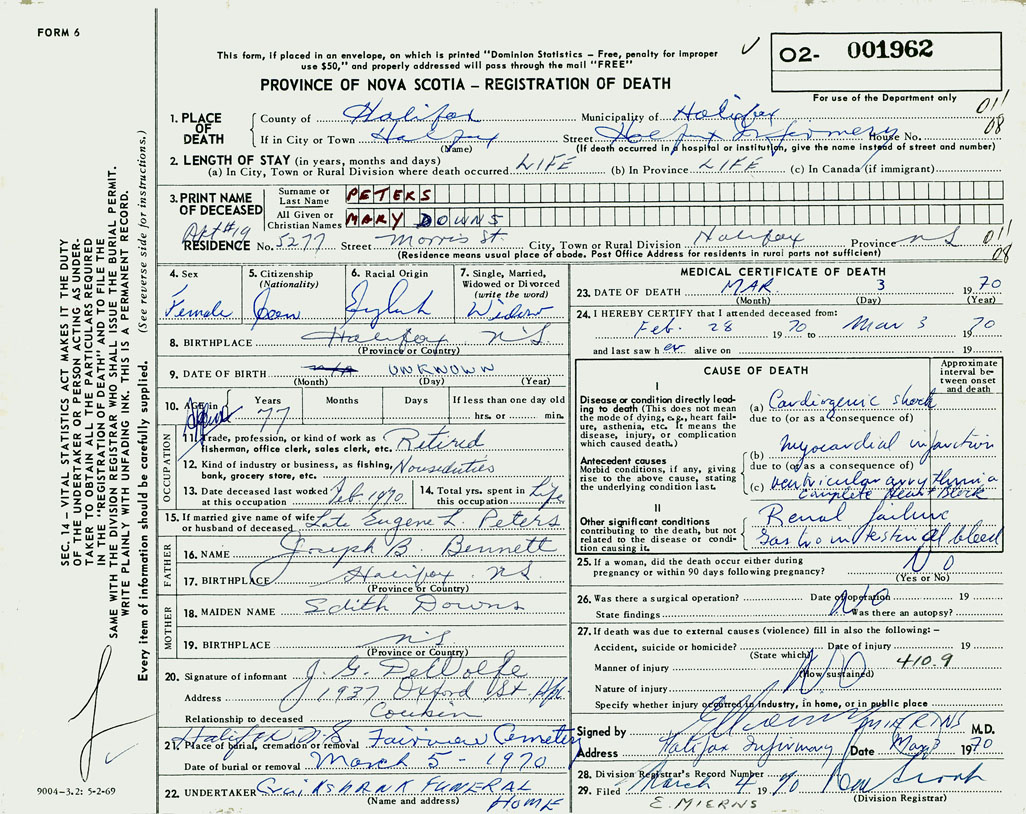 FORM 6
This form, if placed in an envelope, on which is printed "Dominion Statistics – Free, penalty for improper
use $50," and properly addressed will pass through the mail "FREE"
O2- 001962
PROVINCE OF NOVA SCOTIA – REGISTRATION OF DEATH
For use of the Department only
1. PLACE OF DEATH County of Halifax Municipality of Halifax 011
If in City or Town Halifax Street Halifax Infirmery House No. 08
(Name) (If death occurred in a hospital or institution, give the name instead of street and number)
2. LENGTH OF STAY (in years, months and days)
(a) In City, Town or Rural Division where death occurred LIFE (b) In Province LIFE (c) In Canada (if immigrant)
3. PRINT NAME OF DECEASED Surname or Last Name PETERS
All Given or Christian Names MARY DOWNS
Apt #19
RESIDENCE No. 5277 Street Morris St. City, Town or Rural Division Halifax Province NS 011
(Residence means usual place of abode. Post Office Address for residents in rural parts not sufficient) 08
4. Sex 5. Citizenship (Nationality) 6. Racial Origin 7. Single, Married, Widowed or Divorced (write the word)
Female English Widow
8. BIRTHPLACE Halifax N.S.
(Province or Country)
9. DATE OF BIRTH UNKNOWN
(Month) (Day) (Year)
10. AGE in Years Months Days If less than one day old
77 hrs. or min.
OCCUPATION
11. Trade, profession, or kind of work as Retired
fisherman, office clerk, sales clerk, etc.
12. Kind of industry or business, as fishing, Houseduties
bank, grocery store, etc.
13. Date deceased last worked at this occupation Feb. 1970 14. Total yrs. spent in this occupation Life
15. If married give name of wife or husband of deceased Late Eugene L. Peters
FATHER
16. NAME Joseph B. Bennett
17. BIRTHPLACE Halifax N.S.
(Province or Country)
MOTHER
18. MAIDEN NAME Edith Downs
19. BIRTHPLACE N.S.
(Province or Country)
20. Signature of informant J. G. DeWolfe
Address 1937 Oxford St. Hfx.
Relationship to deceased Cousin
21. Place of burial, cremation or removal Halifax N.S. Fairview Cemetery
Date of burial or removal March 5 - 1970
22. UNDERTAKER Cruikshank FUNERAL HOME
(Name and address)
MEDICAL CERTIFICATE OF DEATH
23. DATE OF DEATH MAR 3 1970
(Month) (Day) (Year)
24. I HEREBY CERTIFY that I attended deceased from:
Feb. 28 1970 to Mar 3 1970
and last saw her alive on 19
CAUSE OF DEATH
Approximate interval between onset and death
I
Disease or condition directly leading to death (This does not mean the mode of dying, e.g., heart failure, asthenia, etc. It means the disease, injury, or complication which caused death.
(a) Cardiogenic shock
due to (or as a consequence of)
Antecedent causes
Morbid conditions, if any, giving rise to the above cause, stating the underlying condition last.
(b) Myocardial infarction
due to (or as a consequence of)
(c) Ventricular arrythmia
complete Heart Block
II
Other significant conditions
contributing to the death, but not related to the disease or condition causing it.
Renal failure
Gastrointestinal bleed
25. If a woman, did the death occur either during
pregnancy or within 90 days following pregnancy? NO
(Yes or No)
26. Was there a surgical operation? Date of operation 19
State findings NO Was there an autopsy?
27. If death was due to external causes (violence) fill in also the following: –
Accident, suicide or homicide? Date of injury 19
(State which) 410.9
Manner of injury NO
(How sustained)
Nature of injury
Specify whether injury occurred in industry, in home, or in public place
Signed by M.D.
Address Halifax Infirmary Date Mar 3 1970
28. Division Registrar's Record Number
29. Filed March 4 1970
(Division Registrar)
E. MIERNS
SEC. 14 – VITAL STATISTICS ACT MAKES IT THE DUTY
OF THE UNDERTAKER OR PERSON ACTING AS UNDER-
TAKER TO OBTAIN ALL THE PARTICULARS REQUIRED
IN THE "REGISTRATION OF DEATH" AND TO FILE THE
SAME WITH THE DIVISION REGISTRAR WHO SHALL ISSUE THE BURIAL PERMIT.
WRITE PLAINLY WITH UNFADING INK. THIS IS A PERMANENT RECORD.
Every item of information should be carefully supplied. (See reverse side for instructions.)
9004–3.2: 5-2-69